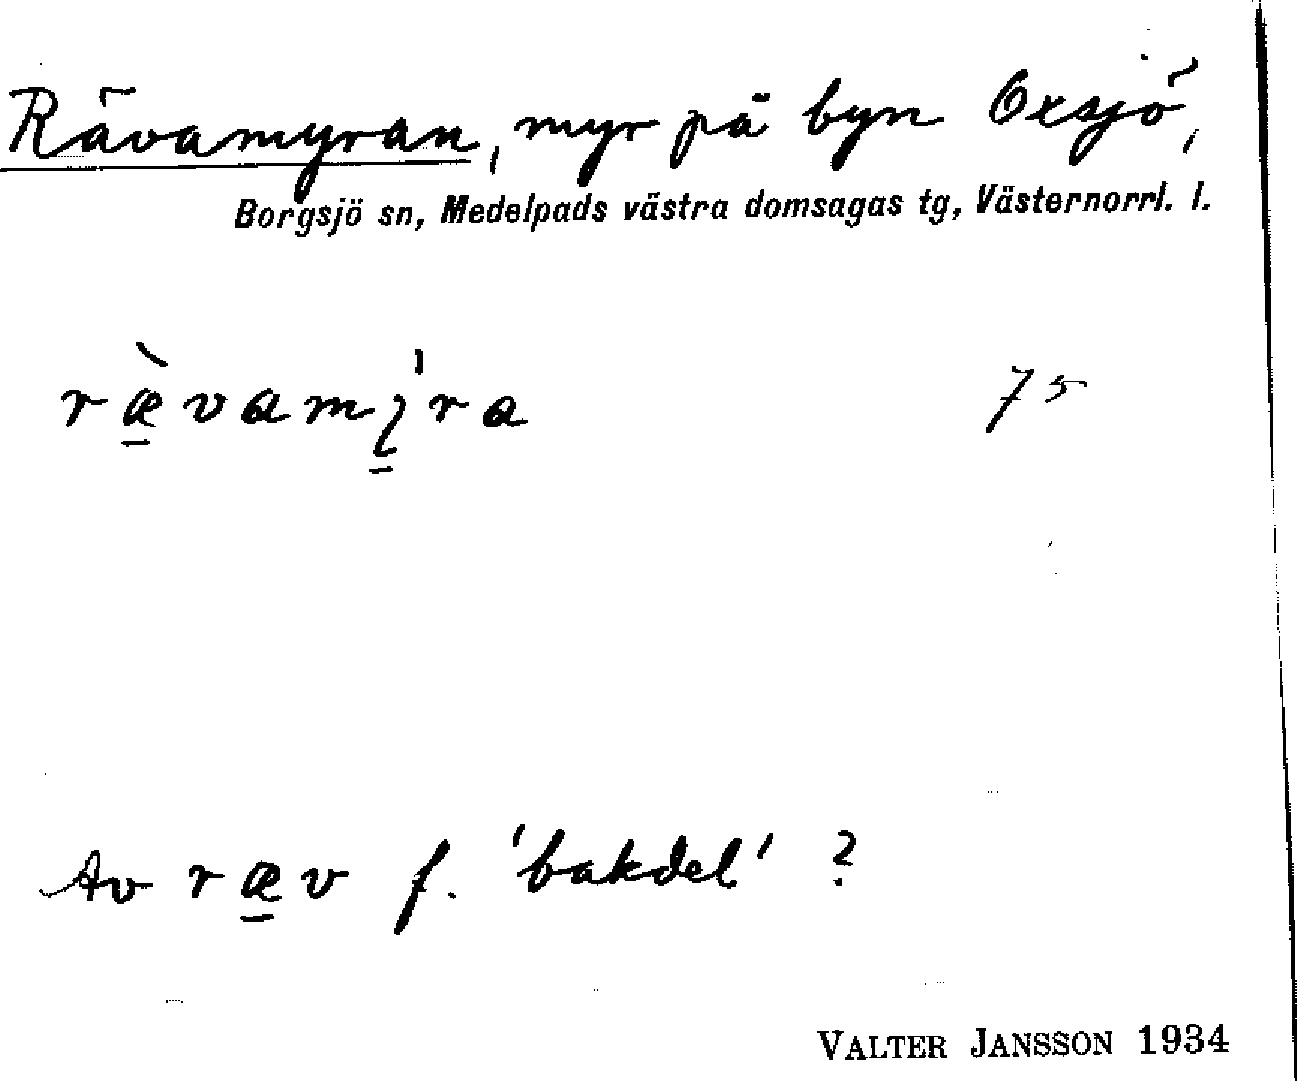 Rävamyran, myr på byn Oxsjö,
Borgsjö sn, Medelpads västra domsagas tg, Västernorrl. l.
ræ̠̀vamy̠̍ra 75
Av ræ̠v f. 'bakdel' ?
VALTER JANSSON 1934